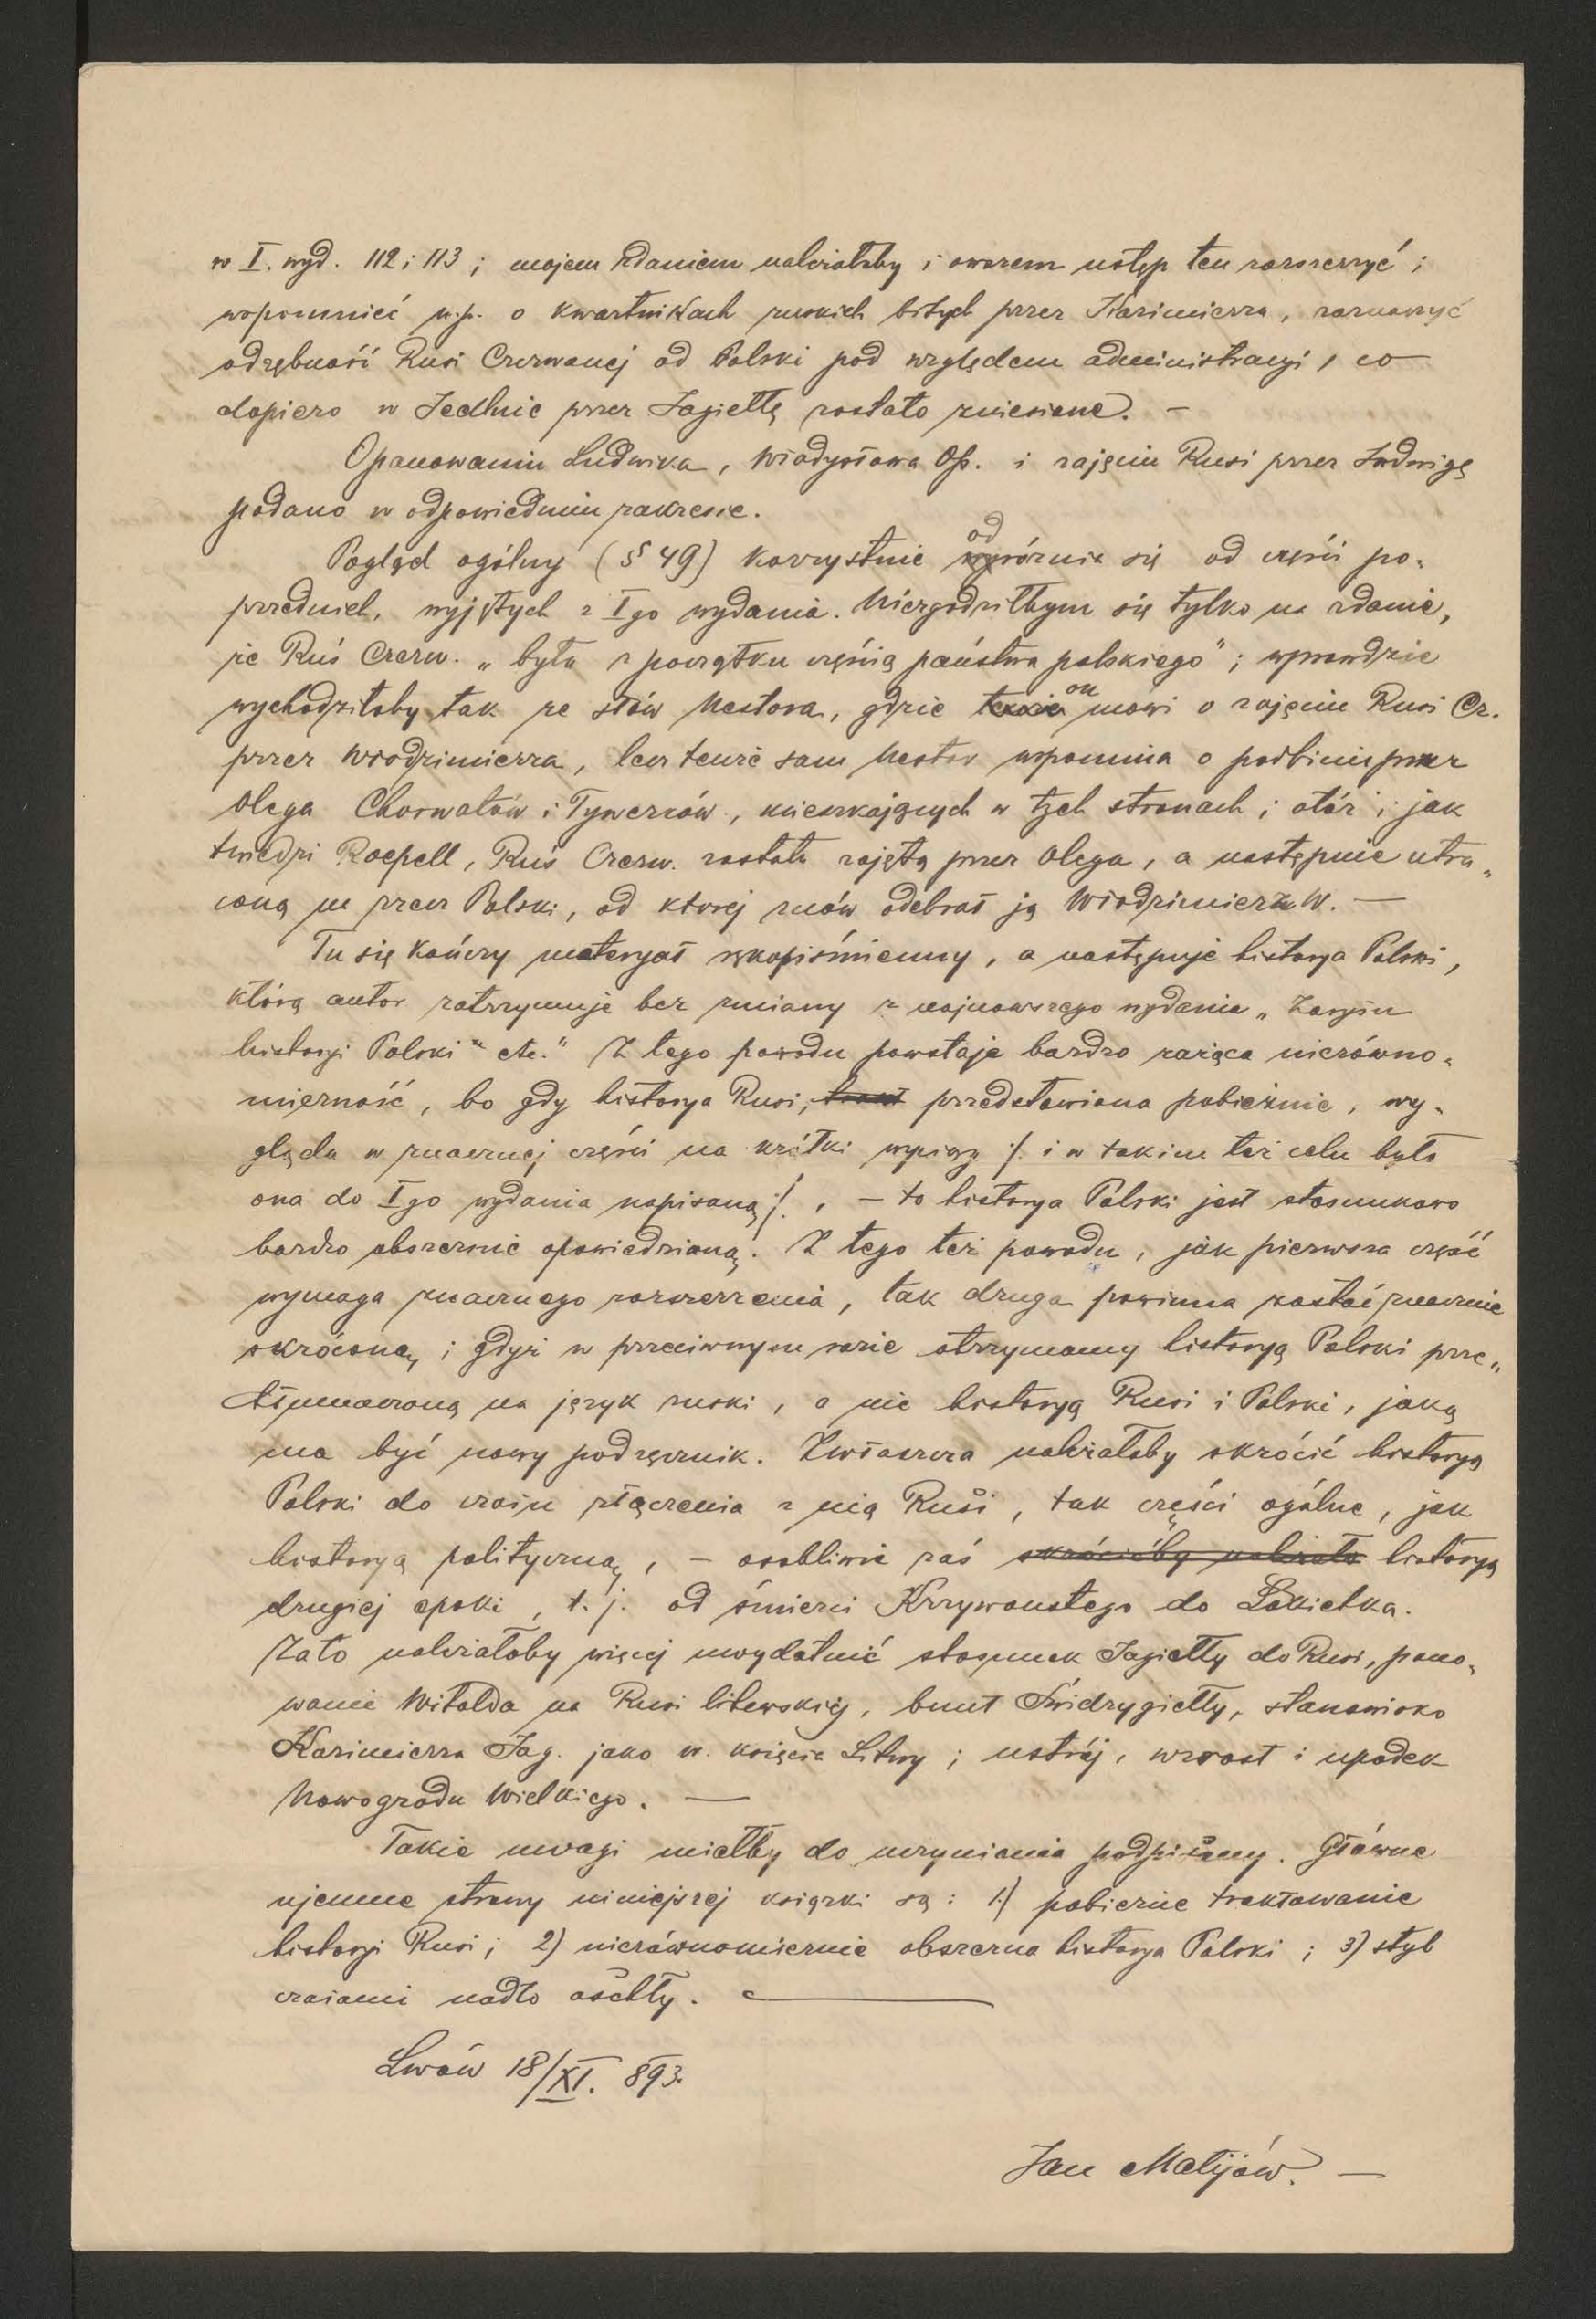 w I. wyd. 112 i 113 ; mojem zdaniem należałoby i owszem ustęp ten rozszerzyć ;
wspomnieć n.p. o kwartnikach ruskich bitych przez Kazimierza, zaznaczyć
odrębność Rusi Czerwonej od Polski pod względem administracyi, co
dopiero w Jedlnie przez Jagiełłę zostało zniesione. –
Opanowaniu Ludwika, Władysława Op. i zajęciu Rusi przez Jadwigę
podano w odpowiedniem zakresie.
Pogląd ogólny (§ 49) korzystnie odróżnia się od części po-
przednich, wyjętych z Igo wydania. Niezgodziłbym się tylko na zdanie,
że Ruś Czerw. „była z początku częścią państwa polskiego" ; wprawdzie
wychodziłoby tak ze słów Nestora, gdzie on mówi o zajęciu Rusi Cz.
przez Włodzimierza, lecz tenże sam Nestor wspomina o podbiciu przez
Olega Chorwatów i Tywerców, mieszkających w tych stronach ; otóż i jak
twiedzi Roepell, Ruś Czerw. została zajętą przez Olega, a następnie utra-
coną na rzecz Polski, od ktorej znów odebrał ją Włodzimierz W. –
Tu się kończy materyał rękopiśmienny, a następuje historya Polski,
którą autor zatrzymuje bez zmiany z najnowszego wydania „Zarysu
historyi Polski" etc." Z tego powodu powstaje bardzo rażąca nierówno-
mierność, bo gdy historya Rusi, przedstawiona pobieżnie, wy-
gląda w znacznej części na krótki wyciąg /. i w takim też celu była
ona do Igo wydania napisaną ./. , – to historya Polski jest stosunkowo
bardzo obszernie opowiedzianą. Z tego też powodu, jak pierwsza część
wymaga znacznego rozszerzenia, tak druga powinna zostać znacznie
skróconą ; gdyż w przeciwnym razie otrzymamy historyą Polski prze-
tłumaczoną na język ruski, a nie historyą Rusi i Polski, jaką
ma być nowy podręcznik. Zwłaszcza należałoby skrócić historyą
Polski do czasu złączenia z nią Rusi, tak części ogólne, jak
historyą polityczną, – osobliwie zaś skrócićby należało historyą
drugiej epoki, t. j. od śmierci Krzywoustego do Łokietka.
Zato należałoby więcej uwydatnić stosunek Jagiełły do Rusi, pano-
wanie Witolda na Rusi litewskiej, bunt Świdrygiełły, stanowisko
Kazimierza Jag. jako w. księcia Litwy ; ustrój, wzrost i upadek
Nowogrodu Wielkiego. –
Takie uwagi miałby do uczynienia podpisany. Główne
ujemne strony niniejszej książki są : 1) pobieżne traktowanie
historyi Rusi ; 2) nierównomiernie obszerna historya Polski ; 3) styl
czasami nadto oschły.
Lwów 18/XI. 893.
Jan Matijów. –